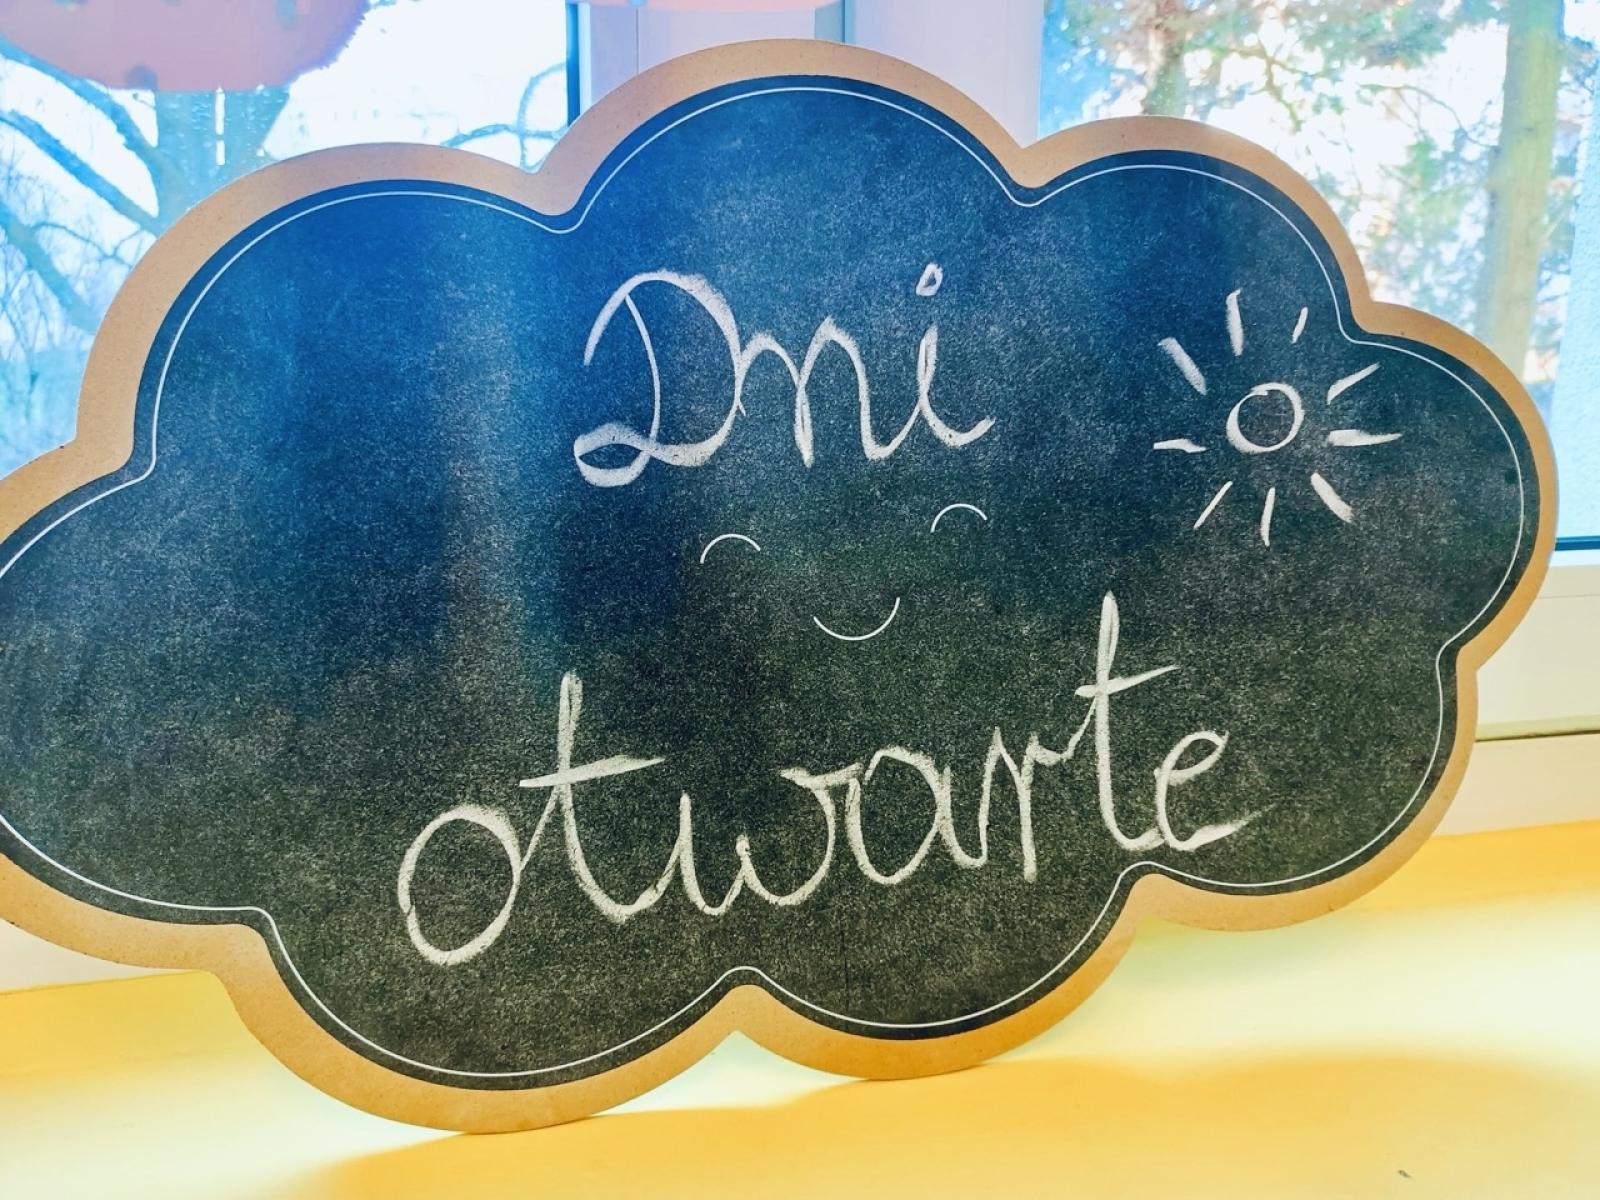 Dni
otwarte